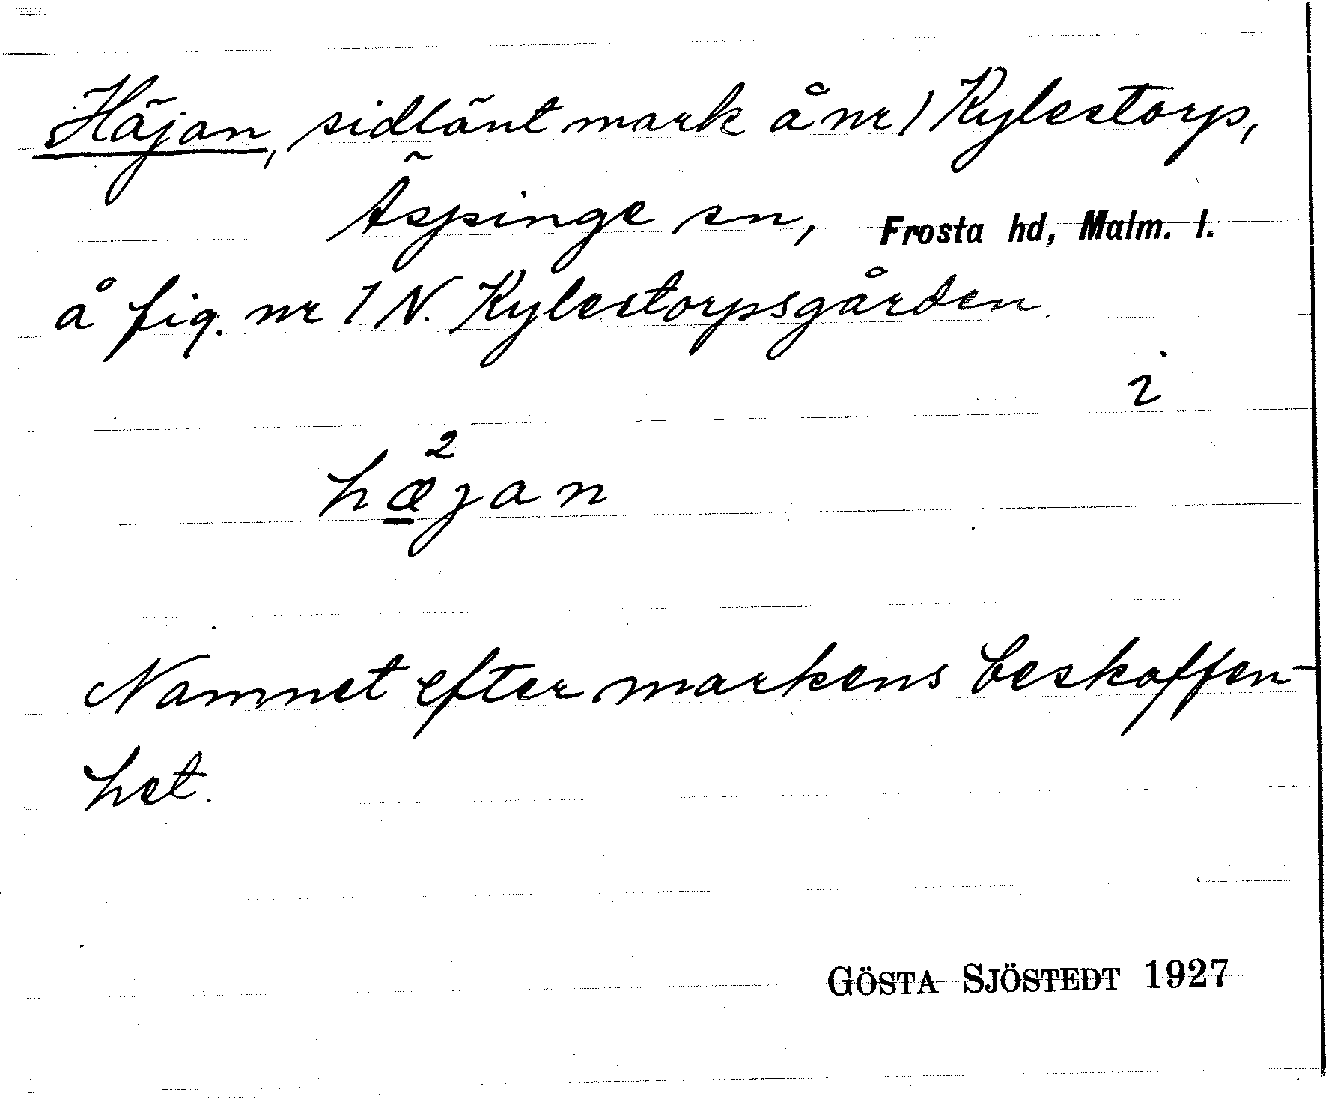 Häjan, sidlänt mark å nr 1 Kylestorp,
Äspinge sn, Frosta hd, Malm. l.
å fig. nr 1 N. Kylestorpsgården.
i
2
hæjan
Namnet efter markens beskaffen-
het.
GÖSTA SJÖSTEDT 1927